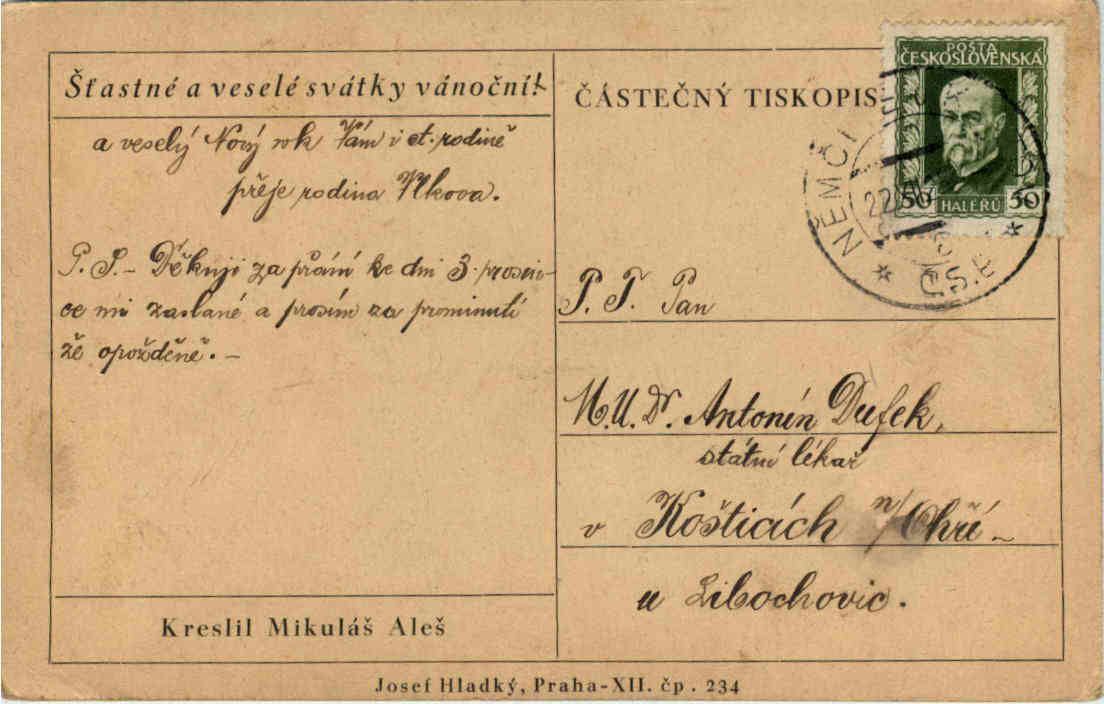 Šťastné a veselé svátky vánoční!
a veselý Nový rok Vám i ct. rodině
přeje rodina Vlkova.
P. S. – Děkuji za přání ke dni 3. prosin-
ce mi zaslané a prosím za prominutí
že opožděně. –
Kreslil Mikuláš Aleš
ČÁSTEČNÝ TISKOPIS
POŠTA
ČESKOSLOVENSKÁ
50 HALÉŘŮ 50
NĚMČI
P. T. Pan
M.U.Dr. Antonín Dufek,
státní lékař
v Košticích n/Ohří –
u Libochovic.
Josef Hladký, Praha-XII. čp. 234